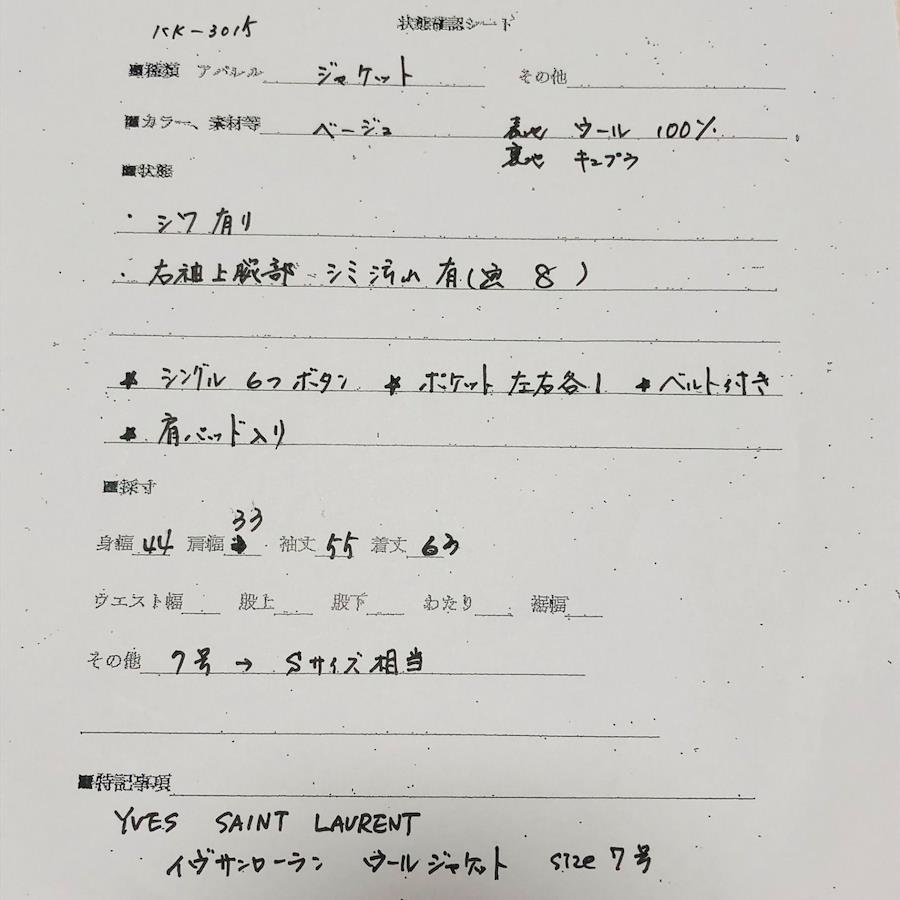 KK-3015
状態確認シート
■種類 アパレル ジャケット その他
■カラー、素材等 ベージュ 表地 ウール 100%
裏地 キュプラ
■状態
・シワ有り
・右袖上腕部 シミ汚れ 有(画 8)
★ シングル 6つボタン ★ ポケット 左右各1 ★ベルト付き
★ 肩パッド入り
■採寸
33
身幅 44 肩幅 袖丈 55 着丈 63
ウエスト幅 股上 股下 わたり 裾幅
その他 7号 → Sサイズ相当
■特記事項
YVES SAINT LAURENT
イヴサンローラン ウールジャケット size 7号